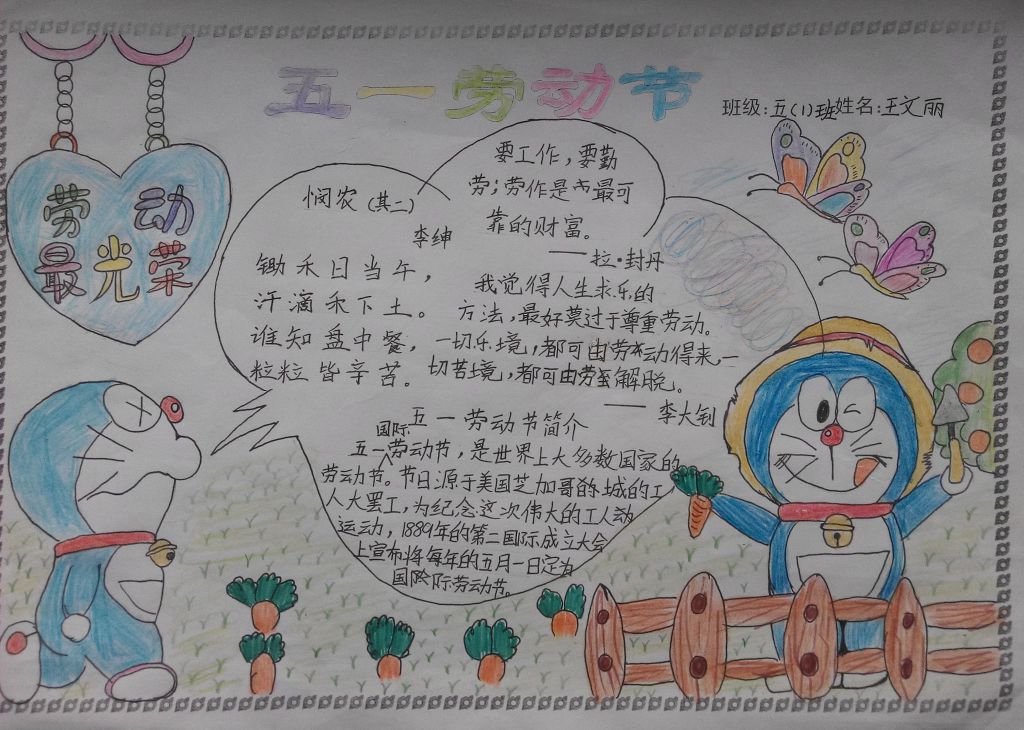 五一劳动节
班级:五(1)班姓名:王文丽
劳动
最光荣
悯农(其二)
李绅
锄禾日当午，
汗滴禾下土。
谁知盘中餐，
粒粒皆辛苦。
要工作，要勤
劳；劳作是最可
靠的财富。
——拉·封丹
我觉得人生求乐的
方法，最好莫过于尊重劳动。
一切乐境，都可由劳动得来，一
切苦境，都可由劳解脱。
——李大钊
五一劳动节简介
五一国际劳动节，是世界上大多数国家的
劳动节。节日源于美国芝加哥的城的工
人大罢工，为纪念这次伟大的工人动
运动，1889年的第二国际成立大会
上宣布将每年的五月一日定为
国际际劳动节。